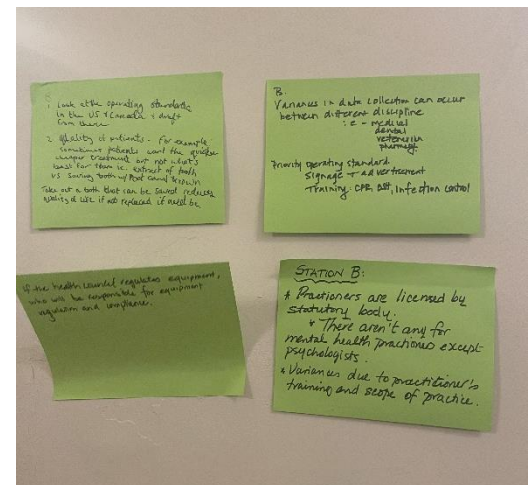 B
1. Look at the operating standards
in the US & Canada & draft
from there
2. Quality of patients - For example
sometimes patients want the quicker
cheaper treatment but not what's
best for them i.e. extract of tooth
vs. saving tooth w/ Root canal &
Take out a tooth that can be saved reduces
quality of life if not replaced if need be
B:
Variances in data collection can occur
between different discipline
i.e - medical
dental
veterinarian
pharmacy
Priority operating standard
Signage → advertisement
Training: CPR, infection control
If the health council regulates equipment,
who will be responsible for equipment
regulation and compliance.
STATION B:
* Practioners are licensed by
statutory body.
* There aren't any for
mental health practiones except
psychologists.
* Variances due to practitioner's
training and scope of practice.